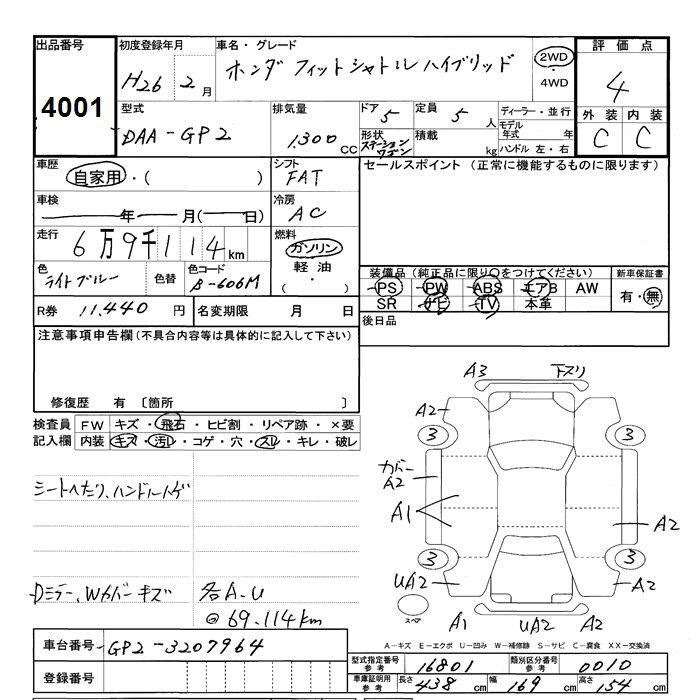 出品番号
4001
初度登録年月
H26 2月
車名・グレード
ホンダ フィットシャトルハイブリッド
2WD
・
4WD
評価点
4
外装 内装
C C
型式
DAA-GP2
排気量
1,300 CC
ドア 5
形状
ステーションワゴン
定員 5 人
積載 kg
ディーラー・並行
モデル年式 年
ハンドル 左・右
車歴
自家用・( )
シフト
FAT
セールスポイント (正常に機能するものに限ります)
車検
年 月( 日)
冷房
AC
走行
6万9千114km
燃料
ガソリン
軽油
( ・ )
色
ライトブルー
色替
色コード
B-606M
装備品 (純正品に限り○をつけてください)
PS PW ABS エアB AW
SR ナビ TV 本革
新車保証書
有・無
R券 11,440 円
名変期限 月 日
後日品
注意事項申告欄 (不具合内容等は具体的に記入して下さい)
修復歴 有 〔箇所 〕
検査員
記入欄
FW キズ・飛石・ヒビ割・リペア跡・×要
内装 キズ・汚レ・コゲ・穴・スレ・キレ・破レ
シートへたり、ハンドルハゲ
Dミラー、Wカバーキズ
各A.U
@69.114km
A3 下スリ
A2
3 3
カバー
A2
A1
A2
3 3
UA2 A2
スペア
A1 UA2 A2
A-キズ E-エクボ U-凹み W-補修跡 S-サビ C-腐食 XX-交換済
車台番号 GP2-3207964
登録番号
型式指定番号
参考
16801
類別区分番号
参考
0010
車庫証明用
参考
長さ 438 cm
幅 169 cm
高さ 154 cm